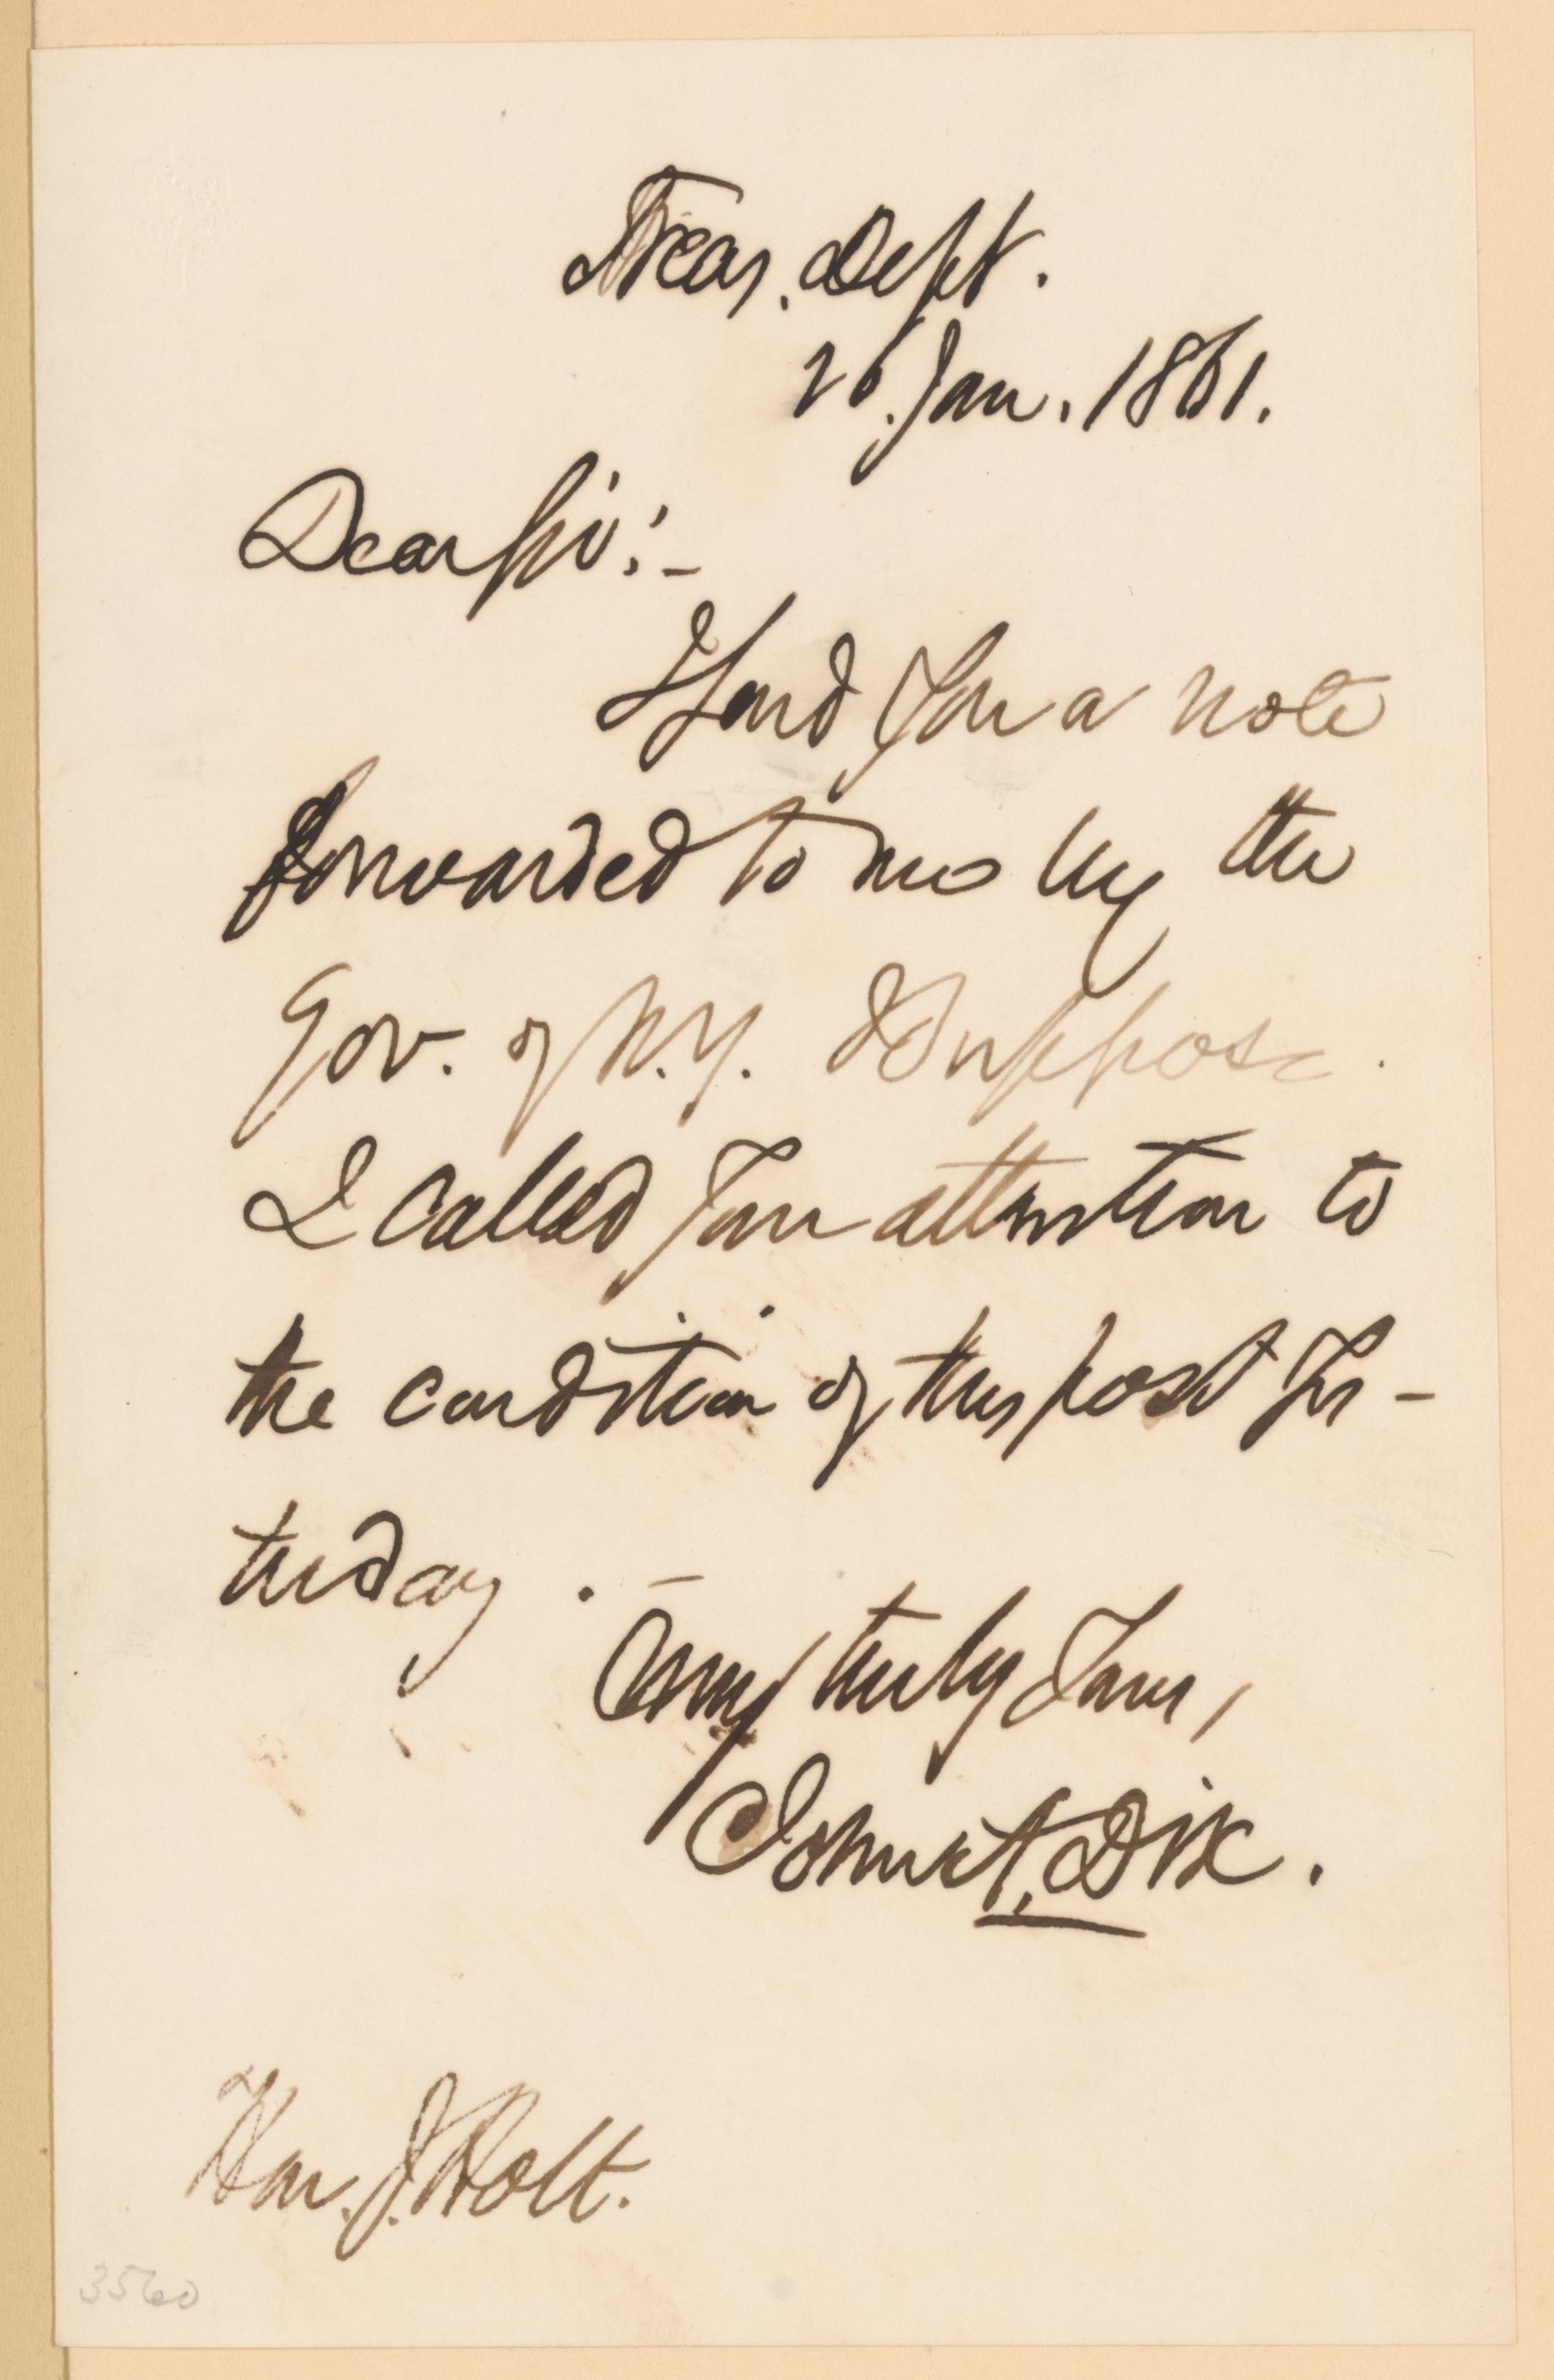 Treas. Dept.
26. Jan. 1861.
Dear Sir:-
I send you a note
forwarded to me by the
Gov. of N.Y. I suppose
I called your attention to
the condition of this post yes-
terday. -
truly yours,
John A. Dix.
Hon. J. Holt.
3560